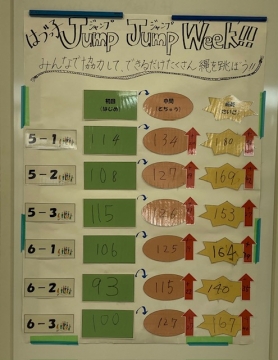 はづっ子 Jump Jump Week!!!
ジャンプ ジャンプ
みんなで協力して、できるだけたくさん縄を跳ぼう!!
初回 (はじめ) 中間 (とちゅう) 最終 さいご
5-1 114 134 180
5-2 108 127 169
5-3 115 153
6-1 106 125 164
6-2 93 115 140
6-3 100 127 167